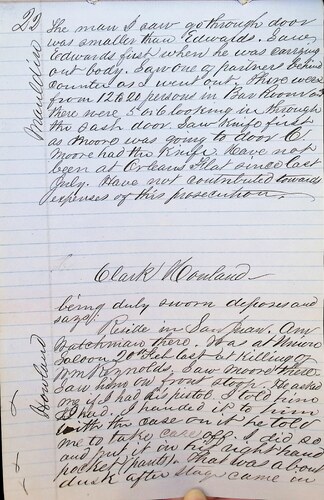 22
Mauldin
The man I saw go through door
was smaller than Edwards. Saw
Edwards first when he was carrying
out body. Saw one of partner behind
counter as I went out. There were
from 12 to 20 persons in Bar Room and
there were 5 or 6 looking in through
the sash door. Saw Knife first
as Moore was going to door &
Moore had the Knife. Have not
been at Orleans Flat since last
July. Have not contributed towards
expenses of this prosecution.
Clark Howland
Howland
being duly sworn deposes and
says:
Reside in San Juan. Am
Watchman there. Was at Union
Saloon 20th Feb last at killing of
Wm Reynolds. Saw Moore there.
Saw him on front stoop. He asked
me if I had his pistol. I told him
I had. I handed it to him
with the case on it he told
me to take case off. I did so
and put it on his right hand
pocket (pants). That was about
dusk after Stage came in